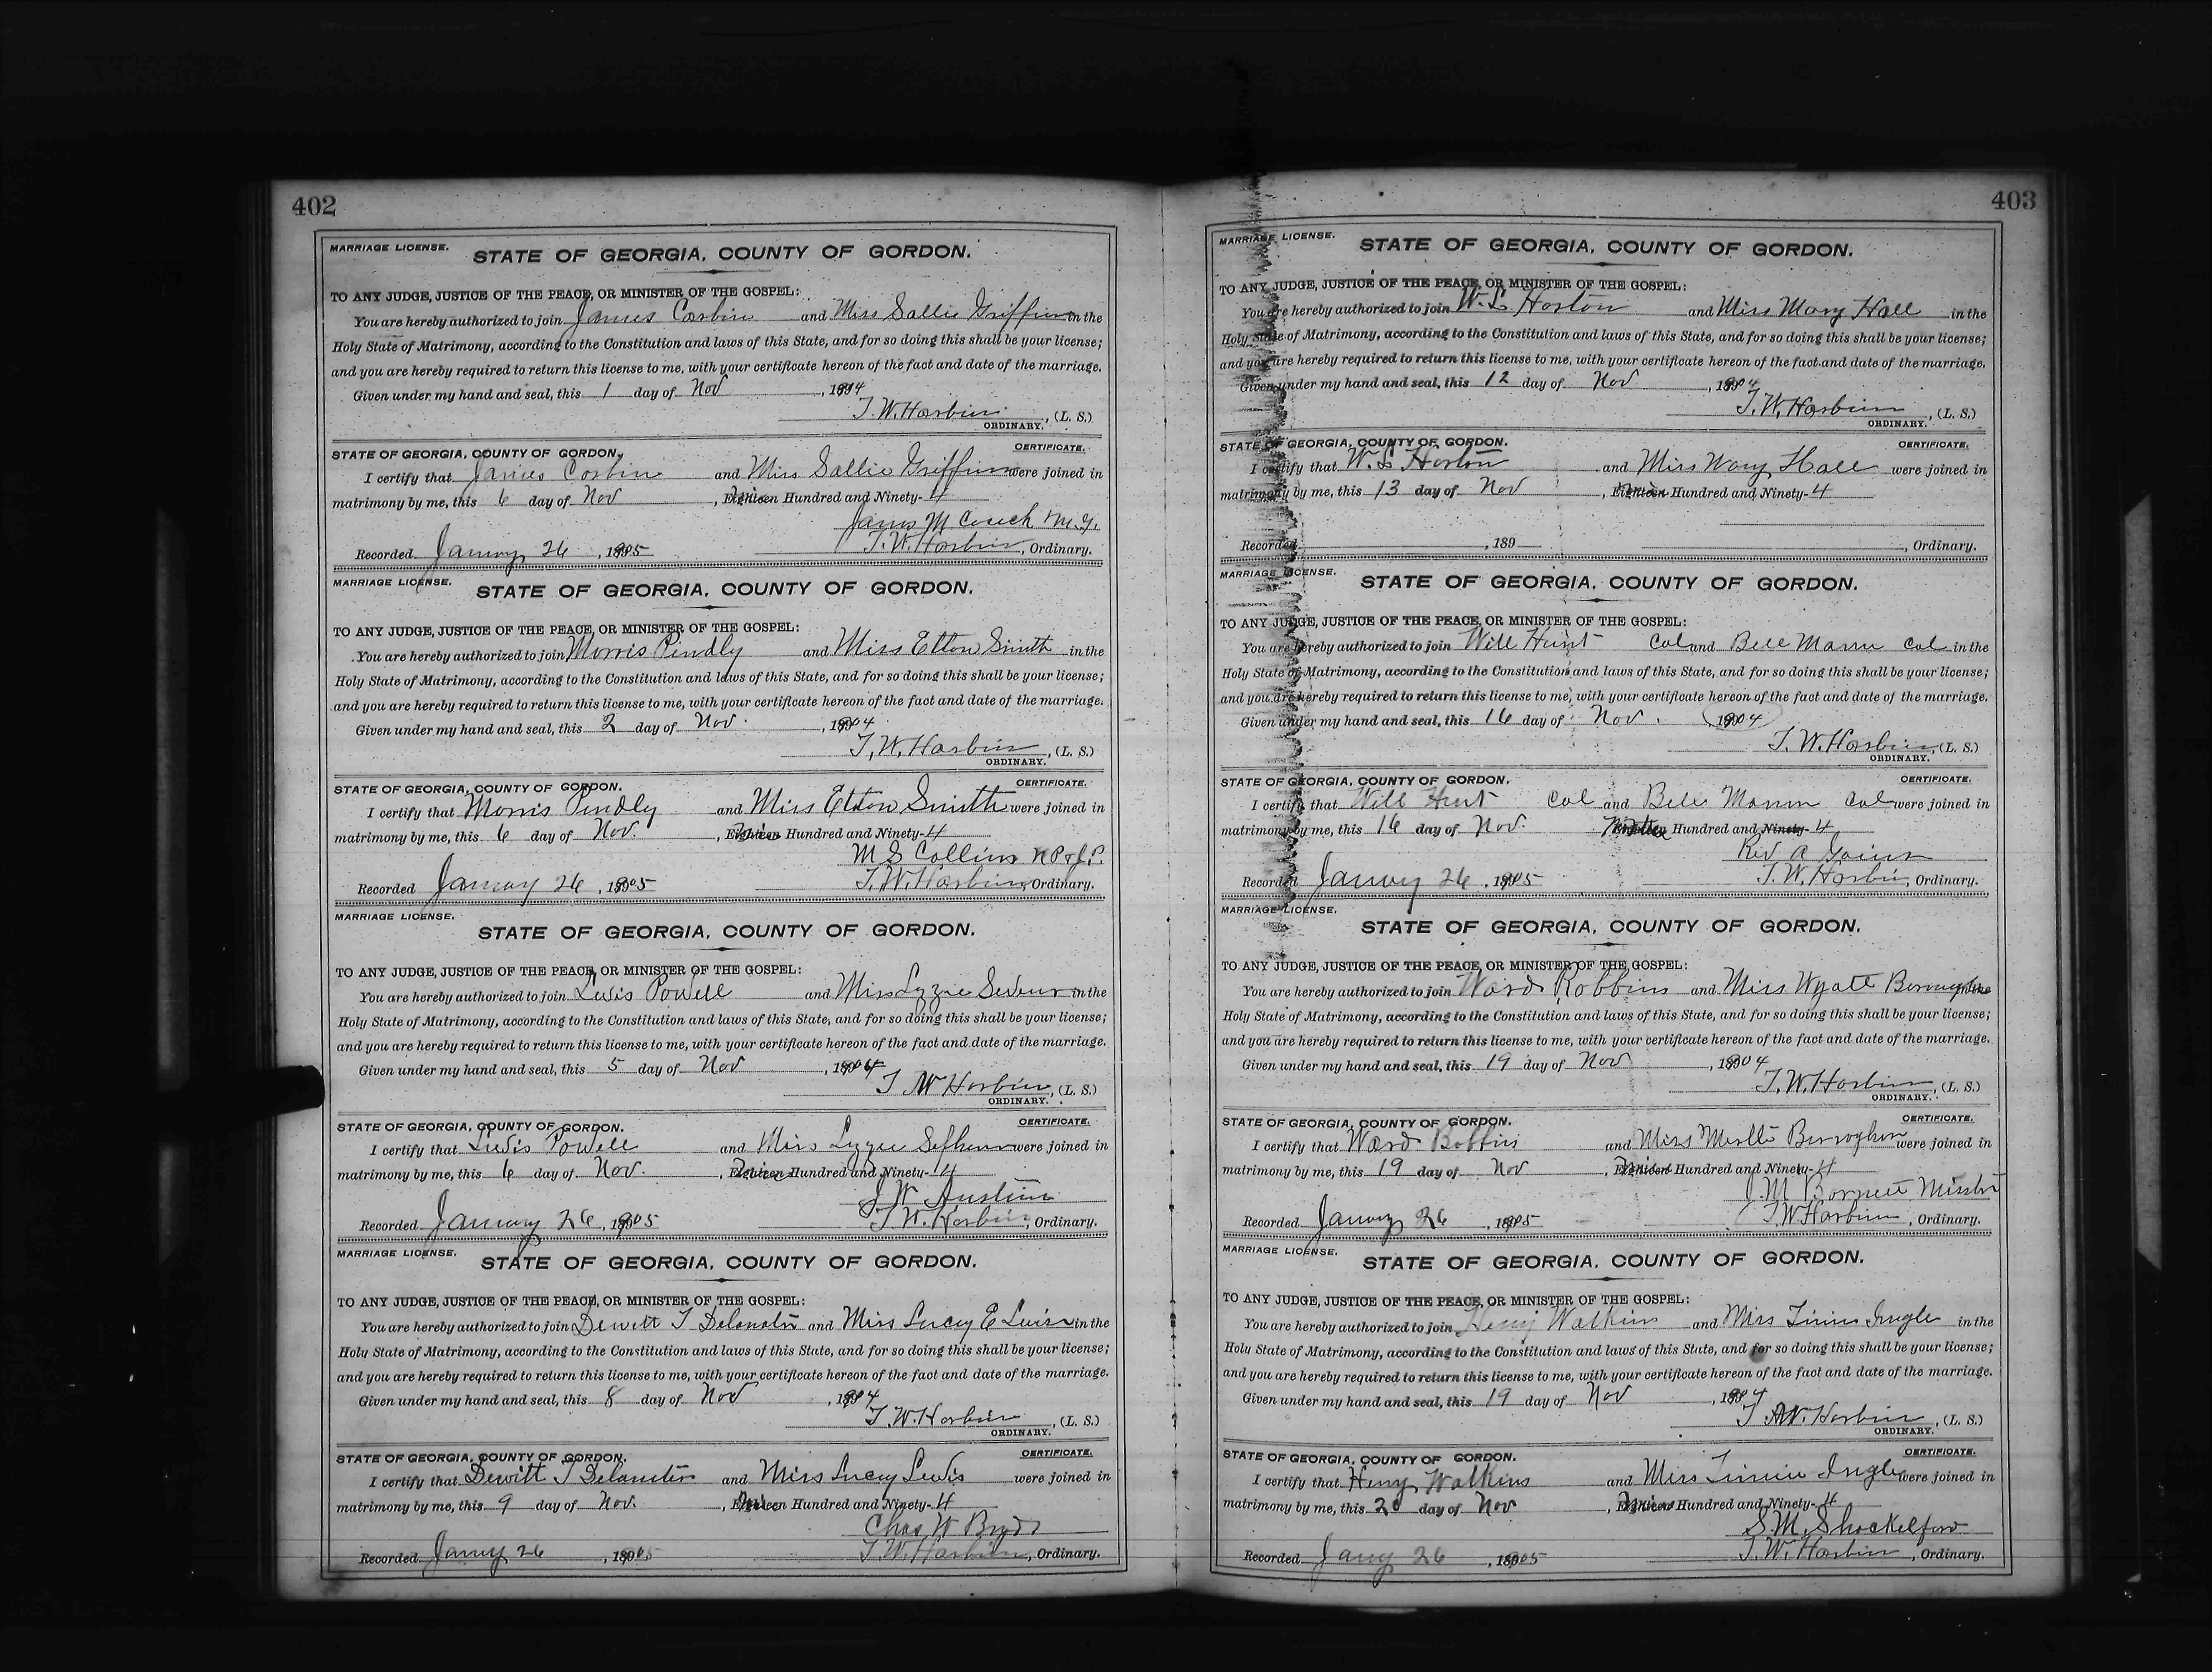 402
MARRIAGE LICENSE.
STATE OF GEORGIA, COUNTY OF GORDON.
TO ANY JUDGE, JUSTICE OF THE PEACE, OR MINISTER OF THE GOSPEL:
You are hereby authorized to join James Corbin and Miss Sallie Griffin in the
Holy State of Matrimony, according to the Constitution and laws of this State, and for so doing this shall be your license;
and you are hereby required to return this license to me, with your certificate hereon of the fact and date of the marriage.
Given under my hand and seal, this 1 day of Nov , 1904
T. W. Harbin , (L. S.)
ORDINARY.
CERTIFICATE.
STATE OF GEORGIA, COUNTY OF GORDON.
I certify that James Corbin and Miss Sallie Griffin were joined in
matrimony by me, this 6 day of Nov , Hundred and Ninety-4
James M Couch M.G.
Recorded January 26 , 1905 T. W. Harbin , Ordinary.
MARRIAGE LICENSE.
STATE OF GEORGIA, COUNTY OF GORDON.
TO ANY JUDGE, JUSTICE OF THE PEACE, OR MINISTER OF THE GOSPEL:
You are hereby authorized to join Morris Pindly and Miss Etton Smith in the
Holy State of Matrimony, according to the Constitution and laws of this State, and for so doing this shall be your license;
and you are hereby required to return this license to me, with your certificate hereon of the fact and date of the marriage.
Given under my hand and seal, this 2 day of Nov. , 1904
T. W. Harbin , (L. S.)
ORDINARY.
CERTIFICATE.
STATE OF GEORGIA, COUNTY OF GORDON.
I certify that Morris Pindly and Miss Etton Smith were joined in
matrimony by me, this 6 day of Nov. , Hundred and Ninety-4
M S Collins N P & J. P.
Recorded January 26 , 1905 T. W. Harbin , Ordinary.
MARRIAGE LICENSE.
STATE OF GEORGIA, COUNTY OF GORDON.
TO ANY JUDGE, JUSTICE OF THE PEACE, OR MINISTER OF THE GOSPEL:
You are hereby authorized to join Lewis Powell and Miss Lyzzie in the
Holy State of Matrimony, according to the Constitution and laws of this State, and for so doing this shall be your license;
and you are hereby required to return this license to me, with your certificate hereon of the fact and date of the marriage.
Given under my hand and seal, this 5 day of Nov , 1904
T W Harbin , (L. S.)
ORDINARY.
CERTIFICATE.
STATE OF GEORGIA, COUNTY OF GORDON.
I certify that Lewis Powell and Miss Lyzzie were joined in
matrimony by me, this 6 day of Nov. , Hundred and Ninety-4
J W Austin
Recorded January 26 , 1905 T. W. Harbin , Ordinary.
MARRIAGE LICENSE.
STATE OF GEORGIA, COUNTY OF GORDON.
TO ANY JUDGE, JUSTICE OF THE PEACE, OR MINISTER OF THE GOSPEL:
You are hereby authorized to join Dewitt T and Miss Lucy E Lewis in the
Holy State of Matrimony, according to the Constitution and laws of this State, and for so doing this shall be your license;
and you are hereby required to return this license to me, with your certificate hereon of the fact and date of the marriage.
Given under my hand and seal, this 8 day of Nov , 1904
T. W. Harbin , (L. S.)
ORDINARY.
CERTIFICATE.
STATE OF GEORGIA, COUNTY OF GORDON.
I certify that Dewitt T and Miss Lucy Lewis were joined in
matrimony by me, this 9 day of Nov. , Hundred and Ninety-4
Chas W
Recorded Jany 26 , 1905 T. W. Harbin , Ordinary.
403
MARRIAGE LICENSE.
STATE OF GEORGIA, COUNTY OF GORDON.
TO ANY JUDGE, JUSTICE OF THE PEACE, OR MINISTER OF THE GOSPEL:
You are hereby authorized to join W. L Horton and Miss Mary Hall in the
Holy State of Matrimony, according to the Constitution and laws of this State, and for so doing this shall be your license;
and you are hereby required to return this license to me, with your certificate hereon of the fact and date of the marriage.
Given under my hand and seal, this 12 day of Nov , 1904
T. W. Harbin , (L. S.)
ORDINARY.
CERTIFICATE.
STATE OF GEORGIA, COUNTY OF GORDON.
I certify that W. L Horton and Miss Mary Hall were joined in
matrimony by me, this 13 day of Nov , Hundred and Ninety-4
Recorded , 189 , Ordinary.
MARRIAGE LICENSE.
STATE OF GEORGIA, COUNTY OF GORDON.
TO ANY JUDGE, JUSTICE OF THE PEACE, OR MINISTER OF THE GOSPEL:
You are hereby authorized to join Will Hunt Col and Bell Mann Col in the
Holy State of Matrimony, according to the Constitution and laws of this State, and for so doing this shall be your license;
and you are hereby required to return this license to me, with your certificate hereon of the fact and date of the marriage.
Given under my hand and seal, this 16 day of Nov. 1904
T. W. Harbin , (L. S.)
ORDINARY.
CERTIFICATE.
STATE OF GEORGIA, COUNTY OF GORDON.
I certify that Will Hunt Col and Bell Mann Col were joined in
matrimony by me, this 16 day of Nov. Hundred and Ninety-4
Rev A
Recorded January 26 , 1905 T. W. Harbin , Ordinary.
MARRIAGE LICENSE.
STATE OF GEORGIA, COUNTY OF GORDON.
TO ANY JUDGE, JUSTICE OF THE PEACE, OR MINISTER OF THE GOSPEL:
You are hereby authorized to join Ward Robbins and Miss Wyatt in the
Holy State of Matrimony, according to the Constitution and laws of this State, and for so doing this shall be your license;
and you are hereby required to return this license to me, with your certificate hereon of the fact and date of the marriage.
Given under my hand and seal, this 19 day of Nov , 1904
T. W. Harbin , (L. S.)
ORDINARY.
CERTIFICATE.
STATE OF GEORGIA, COUNTY OF GORDON.
I certify that Ward Robbins and Miss were joined in
matrimony by me, this 19 day of Nov , Hundred and Ninety-4
J. M Barnett
Recorded January 26 , 1905 T. W Harbin , Ordinary.
MARRIAGE LICENSE.
STATE OF GEORGIA, COUNTY OF GORDON.
TO ANY JUDGE, JUSTICE OF THE PEACE, OR MINISTER OF THE GOSPEL:
You are hereby authorized to join Henry Watkins and Miss Ingle in the
Holy State of Matrimony, according to the Constitution and laws of this State, and for so doing this shall be your license;
and you are hereby required to return this license to me, with your certificate hereon of the fact and date of the marriage.
Given under my hand and seal, this 19 day of Nov , 1904
T. W. Harbin , (L. S.)
ORDINARY.
CERTIFICATE.
STATE OF GEORGIA, COUNTY OF GORDON.
I certify that Henry Watkins and Miss Ingle were joined in
matrimony by me, this 20 day of Nov , Hundred and Ninety-4
S. M. Shackelford
Recorded Jany 26 , 1905 T. W. Harbin , Ordinary.